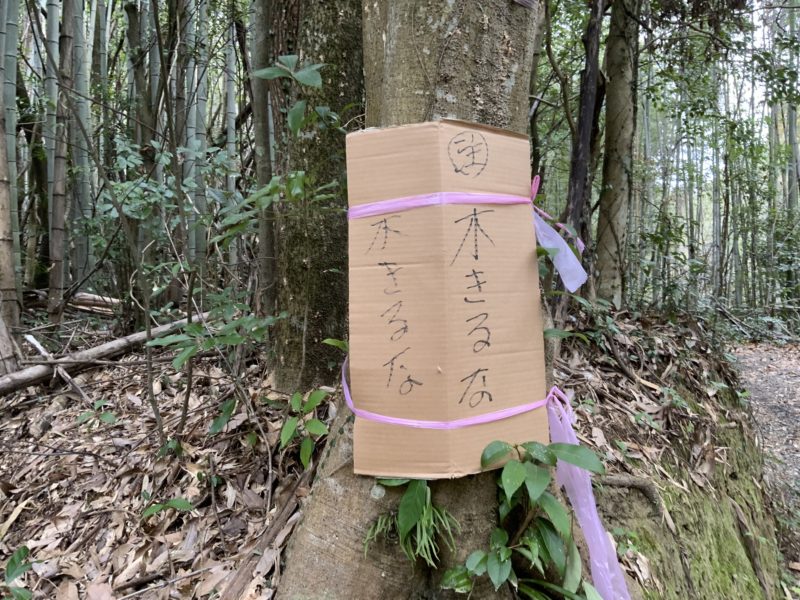 注
木きるな
木きるな